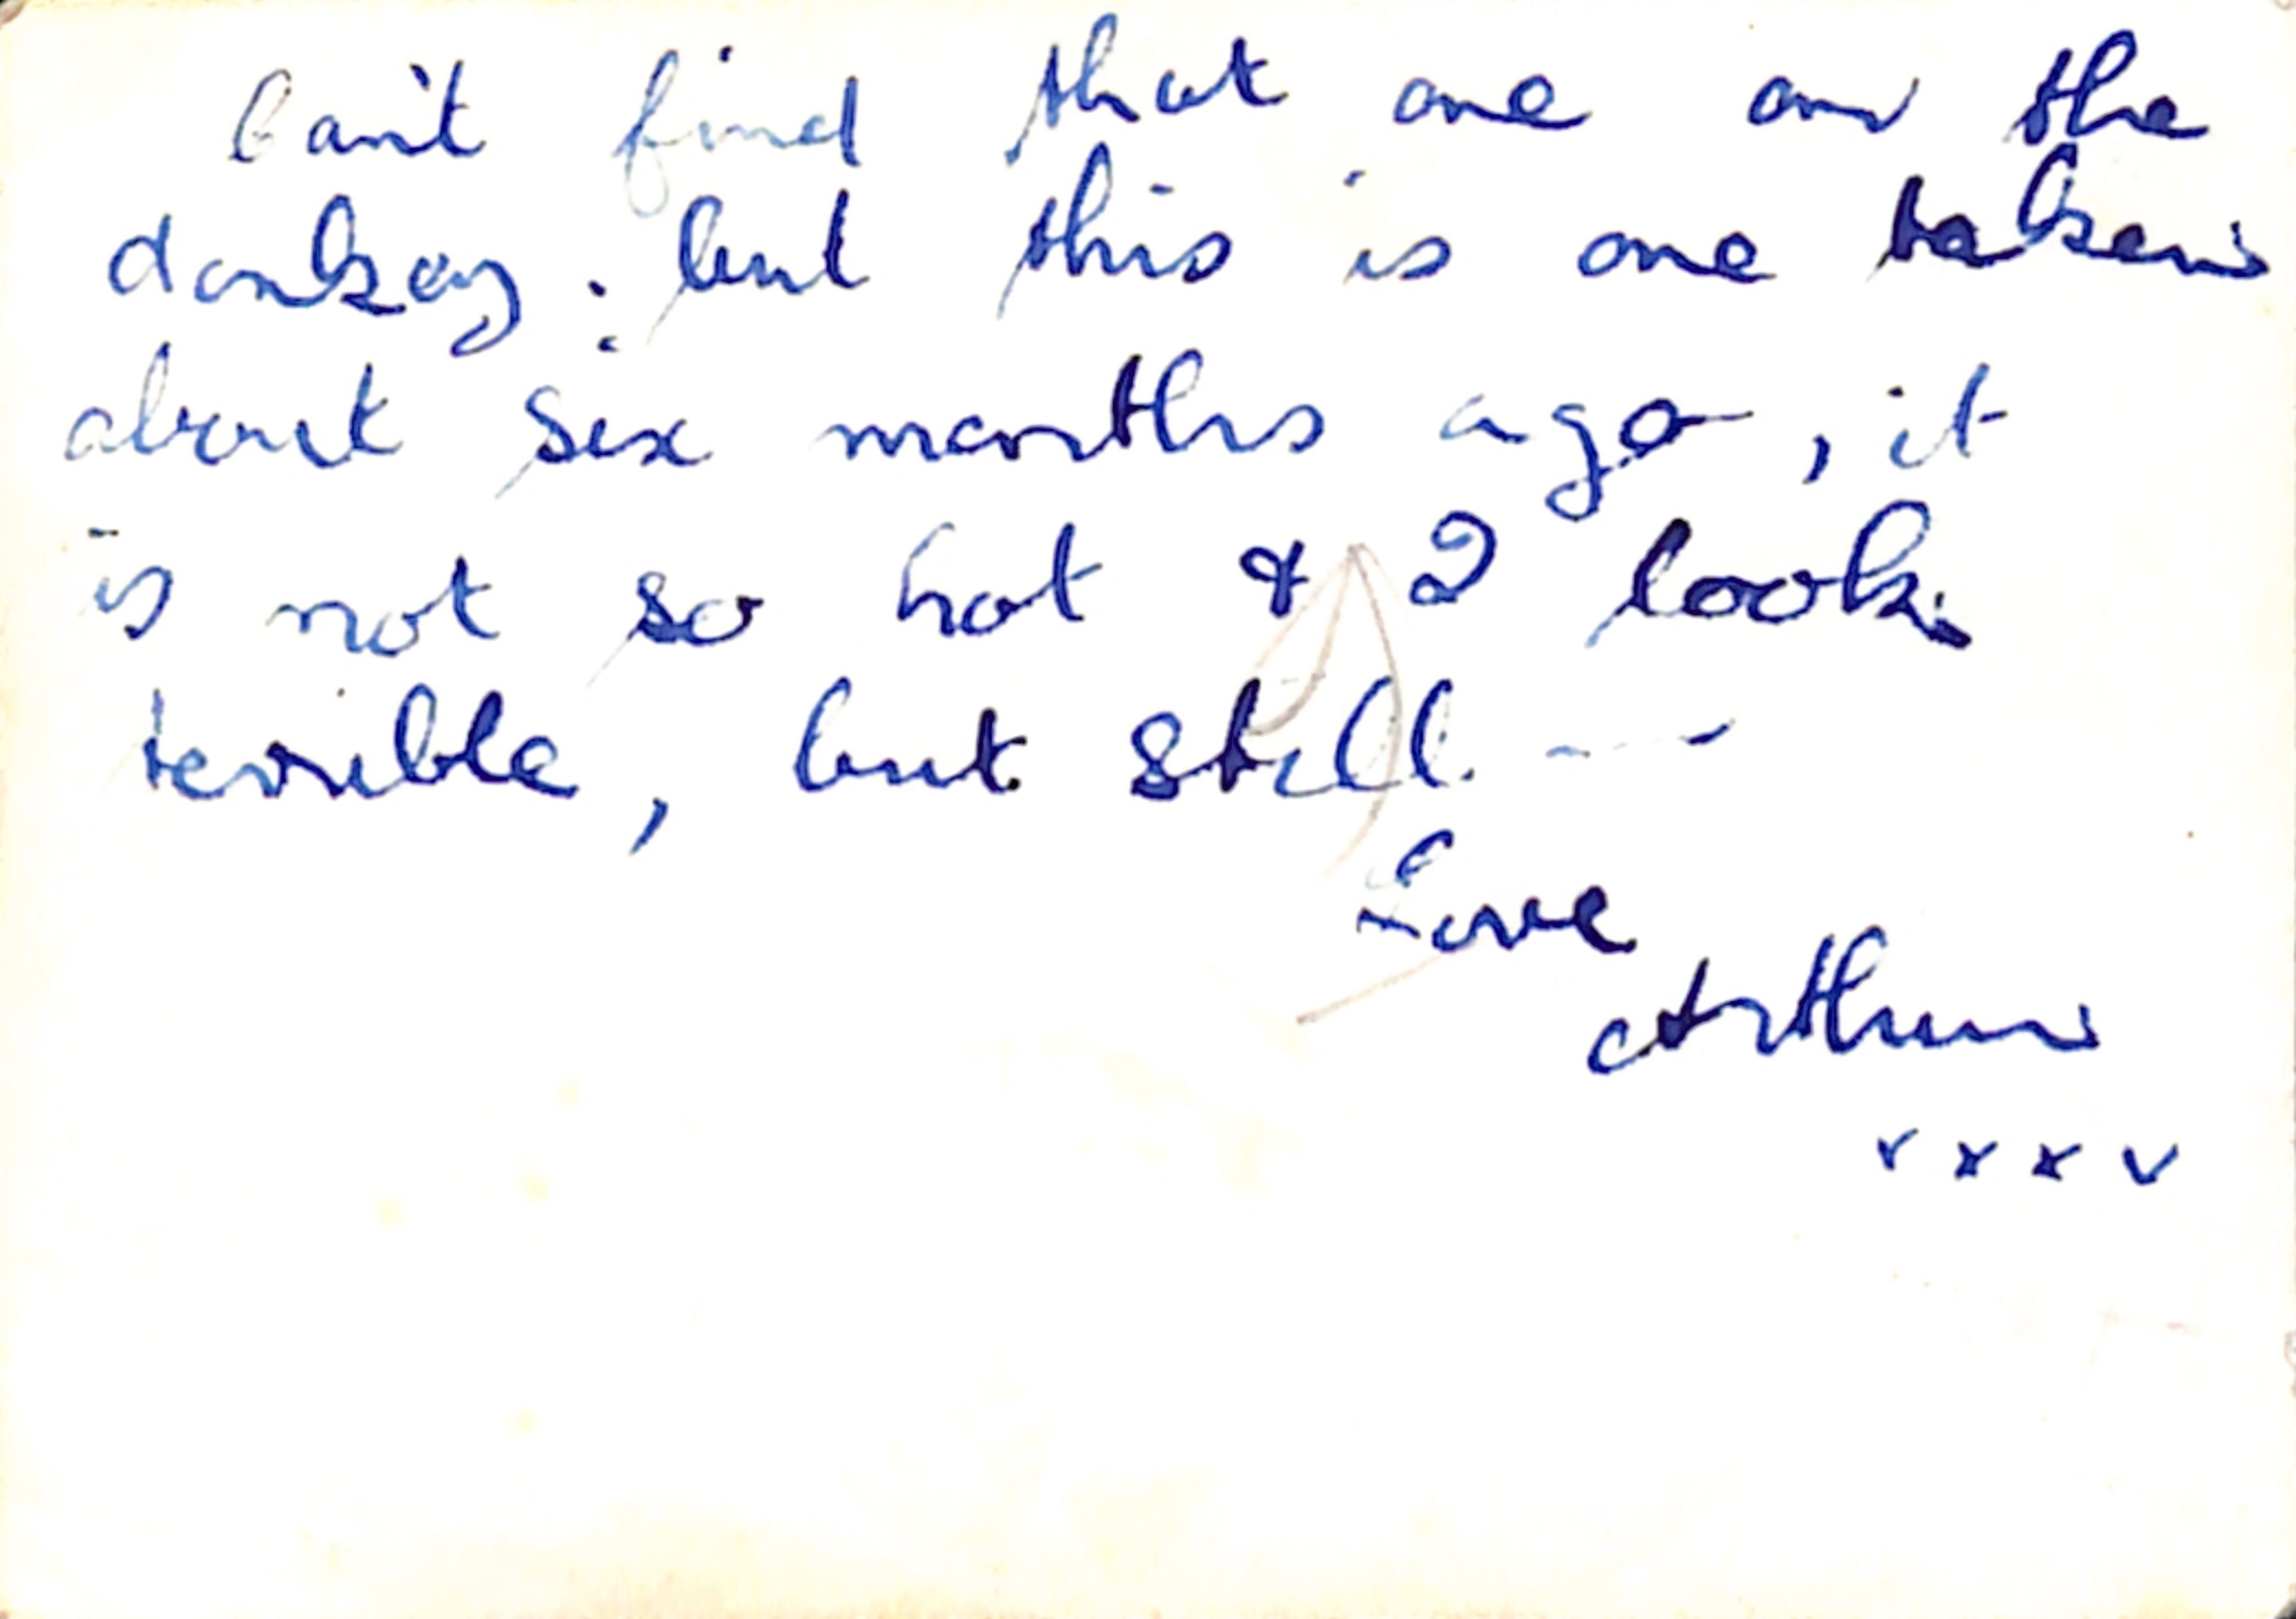 Can't find that one on the
donkey; but this is one taken
about six months ago, it
is not so hot & I look
terrible, but still - - -
Love
Arthur
x x x x